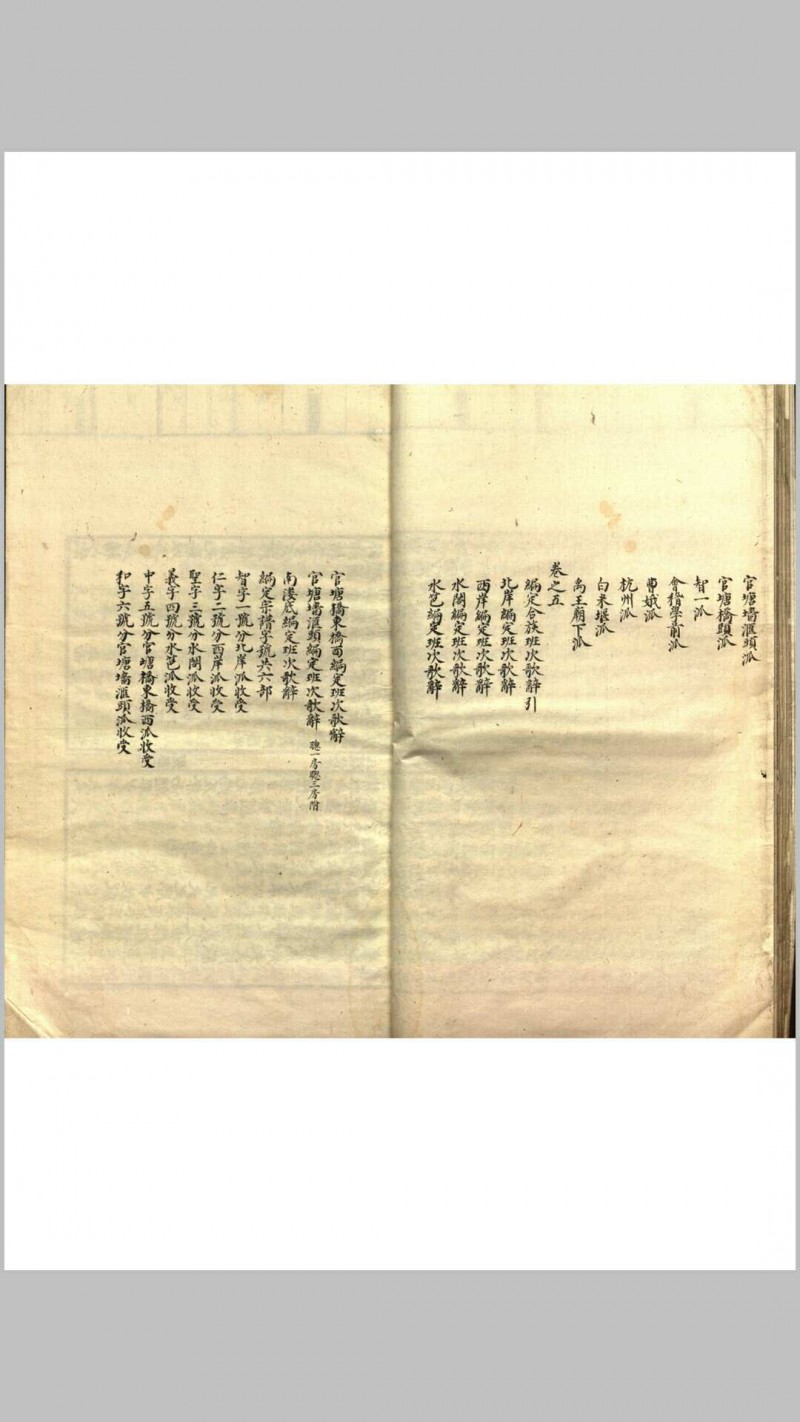 官塘墻滙頭派
官塘橋頭派
智一派
會稽學前派
曹娥派
杭州派
白米堰派
禹王廟下派
卷之五
編定合族班次歌辭引
北岸編定班次歌辭
西岸編定班次歌辭
水閣編定班次歌辭
水笆編定班次歌辭
官塘橋東橋西編定班次歌辭
官塘墻滙頭編定班次歌辭 聰一房聰三房附
南湊底編定班次歌辭
編定宗譜字號共六部
智字一號分北岸派收受
仁字二號分西岸派收受
聖字三號分水閣派收受
義字四號分水笆派收受
中字五號分官塘橋東橋西派收受
和字六號分官塘墻滙頭派收受